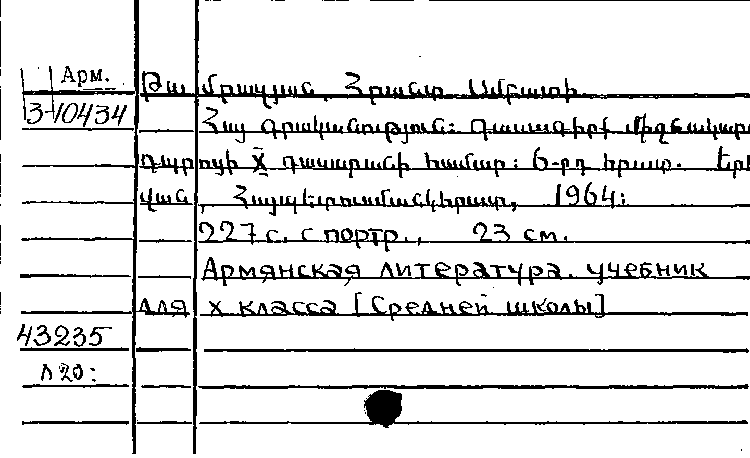 Арм.
3-10434
Թամրազյան, Հրանտ Սմբատի
Հայ գրականություն: Դասագիրք միջնակարգ
դպրոցի X դասարանի համար: 6-րդ հրատ. Երե
վան, Հայպետուսմանկհրատ, 1964:
227 с. с портр., 23 см.
Армянская литература. учебник
для X класса [Средней школы]
43235
Л 20: